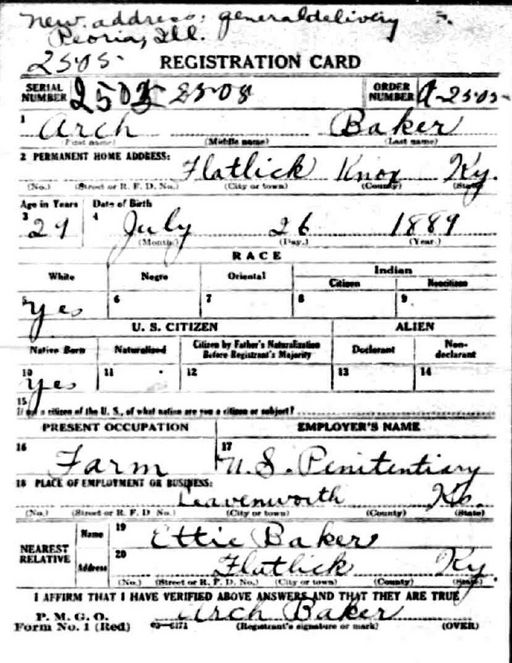 New address: general delivery
Peoria, Ill.
2505
REGISTRATION CARD
SERIAL NUMBER 2505 2508 ORDER NUMBER A-2505
1 Arch Baker
(First name) (Middle name) (Last name)
2 PERMANENT HOME ADDRESS:
Flatlick Knox Ky.
(No.) (Street or R. F. D. No.) (City or town) (County) (State)
Age in Years Date of Birth
3 29 4 July 26 1889
(Month.) (Day.) (Year.)
RACE
White Negro Oriental Indian
Citizen Noncitizen
5 Yes 6 7 8 9
U. S. CITIZEN ALIEN
Native Born Naturalized Citizen by Father's Naturalization Before Registrant's Majority Declarant Non-declarant
10 Yes 11 12 13 14
15
If not a citizen of the U. S., of what nation are you a citizen or subject?
PRESENT OCCUPATION EMPLOYER'S NAME
16 Farm 17 U.S. Penitentiary
18 PLACE OF EMPLOYMENT OR BUSINESS:
Leavenworth Ks.
(No.) (Street or R. F. D. No.) (City or town) (County) (State)
NEAREST RELATIVE
Name 19 Ettie Baker
Address 20 Flatlick Ky.
(No.) (Street or R. F. D. No.) (City or town) (County) (State)
I AFFIRM THAT I HAVE VERIFIED ABOVE ANSWERS AND THAT THEY ARE TRUE
P. M. G. O. Arch Baker
Form No. 1 (Red) 03-6171 (Registrant's signature or mark) (OVER)